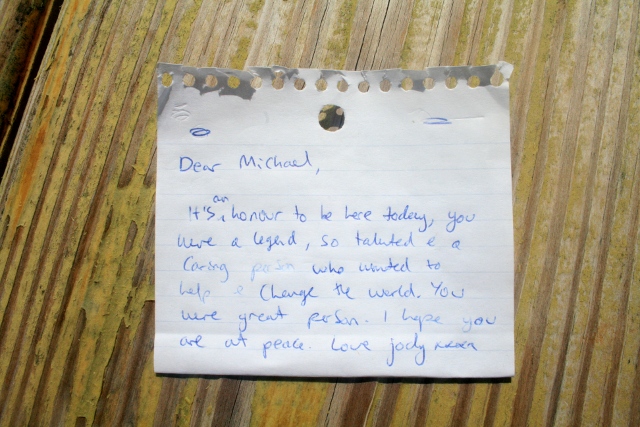 Dear Michael,
It's an honour to be here today, you
were a legend, so talented & a
Caring person who wanted to
help & Change the world. You
were great person. I hope you
are at peace. Love jody xxxxx